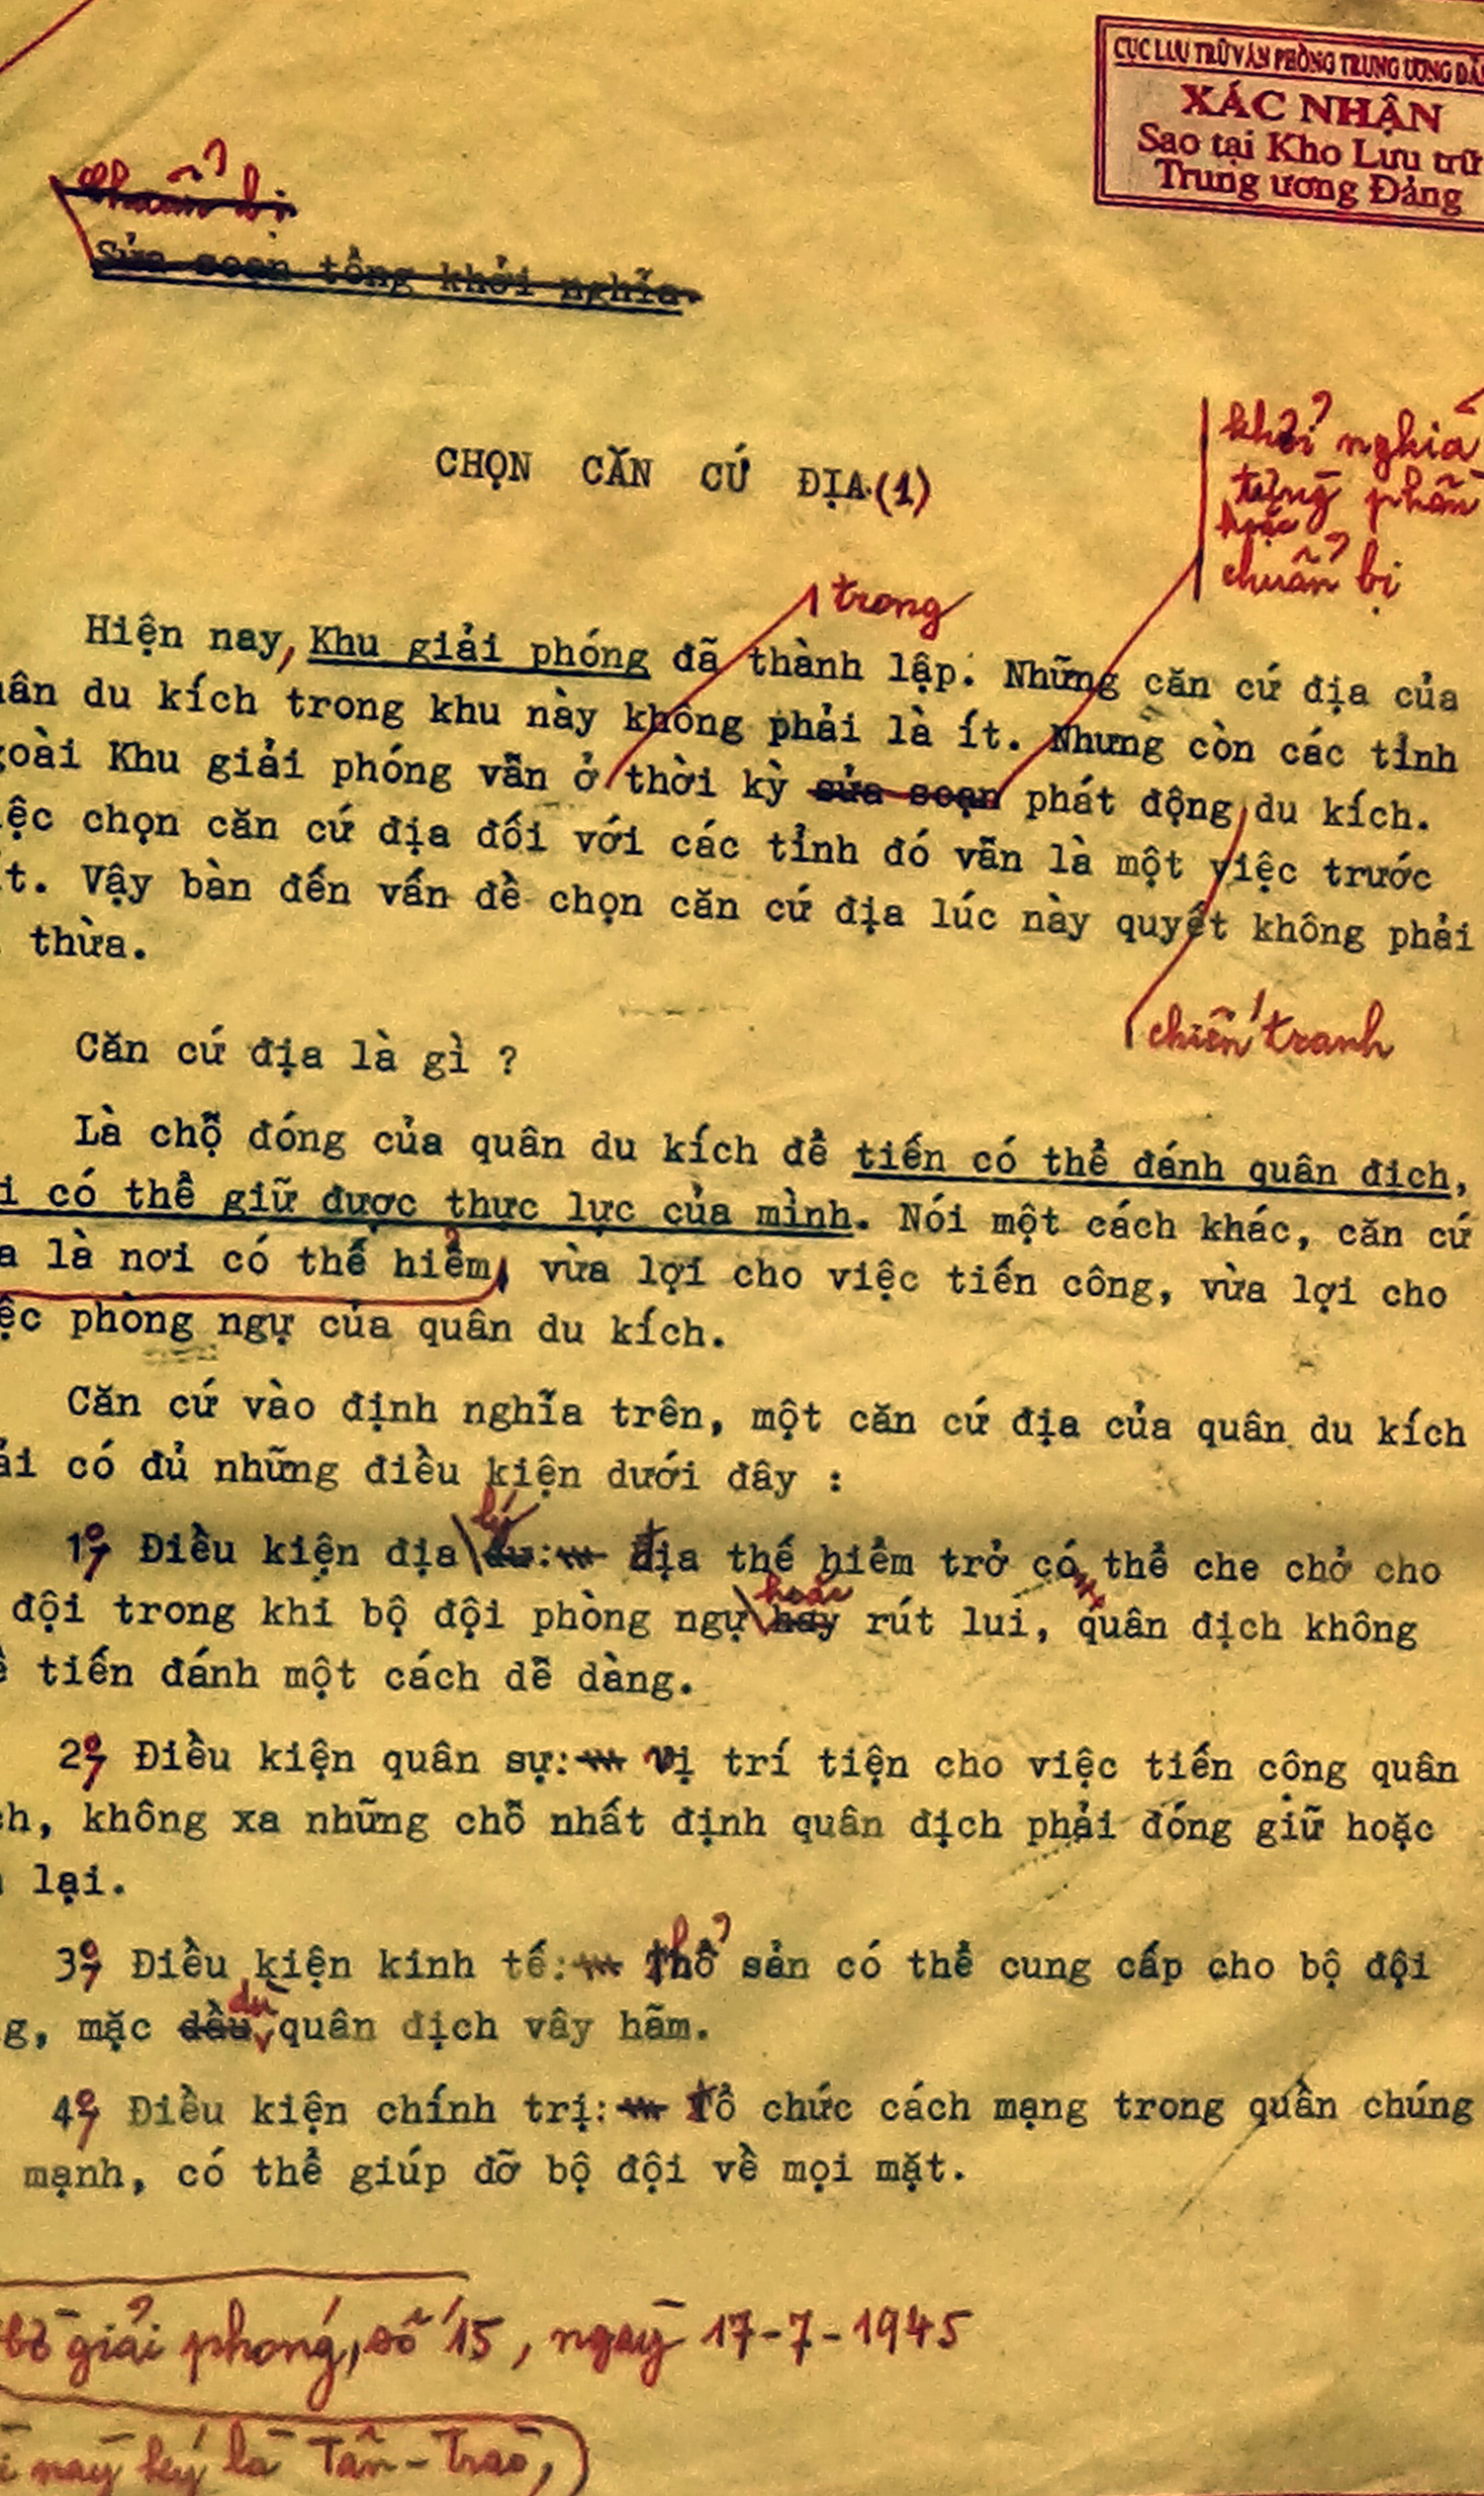 CỤC LƯU TRỮ VĂN PHÒNG TRUNG ƯƠNG
XÁC NHẬN
Sao tại Kho Lưu trữ
Trung ương Đảng
chuẩn bị
Sửa soạn tổng khởi nghĩa.
CHỌN CĂN CỨ ĐỊA (1)
khởi nghĩa
từng phần
hoặc
chuẩn bị
trong
Hiện nay, Khu giải phóng đã thành lập. Những căn cứ địa của
du kích trong khu này không phải là ít. Nhưng còn các tỉnh
Khu giải phóng vẫn ở thời kỳ sửa soạn phát động du kích.
chọn căn cứ địa đối với các tỉnh đó vẫn là một việc trước
Vậy bàn đến vấn đề chọn căn cứ địa lúc này quyết không phải
thừa.
chiến tranh
Căn cứ địa là gì ?
Là chỗ đóng của quân du kích để tiến có thể đánh quân địch,
có thể giữ được thực lực của mình. Nói một cách khác, căn cứ
là nơi có thế hiểm, vừa lợi cho việc tiến công, vừa lợi cho
phòng ngự của quân du kích.
Căn cứ vào định nghĩa trên, một căn cứ địa của quân du kích
có đủ những điều kiện dưới đây :
lý
1º, Điều kiện địa dư: địa thế hiểm trở có thể che chở cho
hoặc
đội trong khi bộ đội phòng ngự hay rút lui, quân địch không
tiến đánh một cách dễ dàng.
2º, Điều kiện quân sự: vị trí tiện cho việc tiến công quân
không xa những chỗ nhất định quân địch phải đóng giữ hoặc
lại.
3º, Điều kiện kinh tế: thổ sản có thể cung cấp cho bộ đội
dù
mặc dầu quân địch vây hãm.
4º, Điều kiện chính trị: tổ chức cách mạng trong quần chúng
mạnh, có thể giúp đỡ bộ đội về mọi mặt.
giải phóng, số 15, ngày 17-7-1945
này ký là Tân-Trào,)